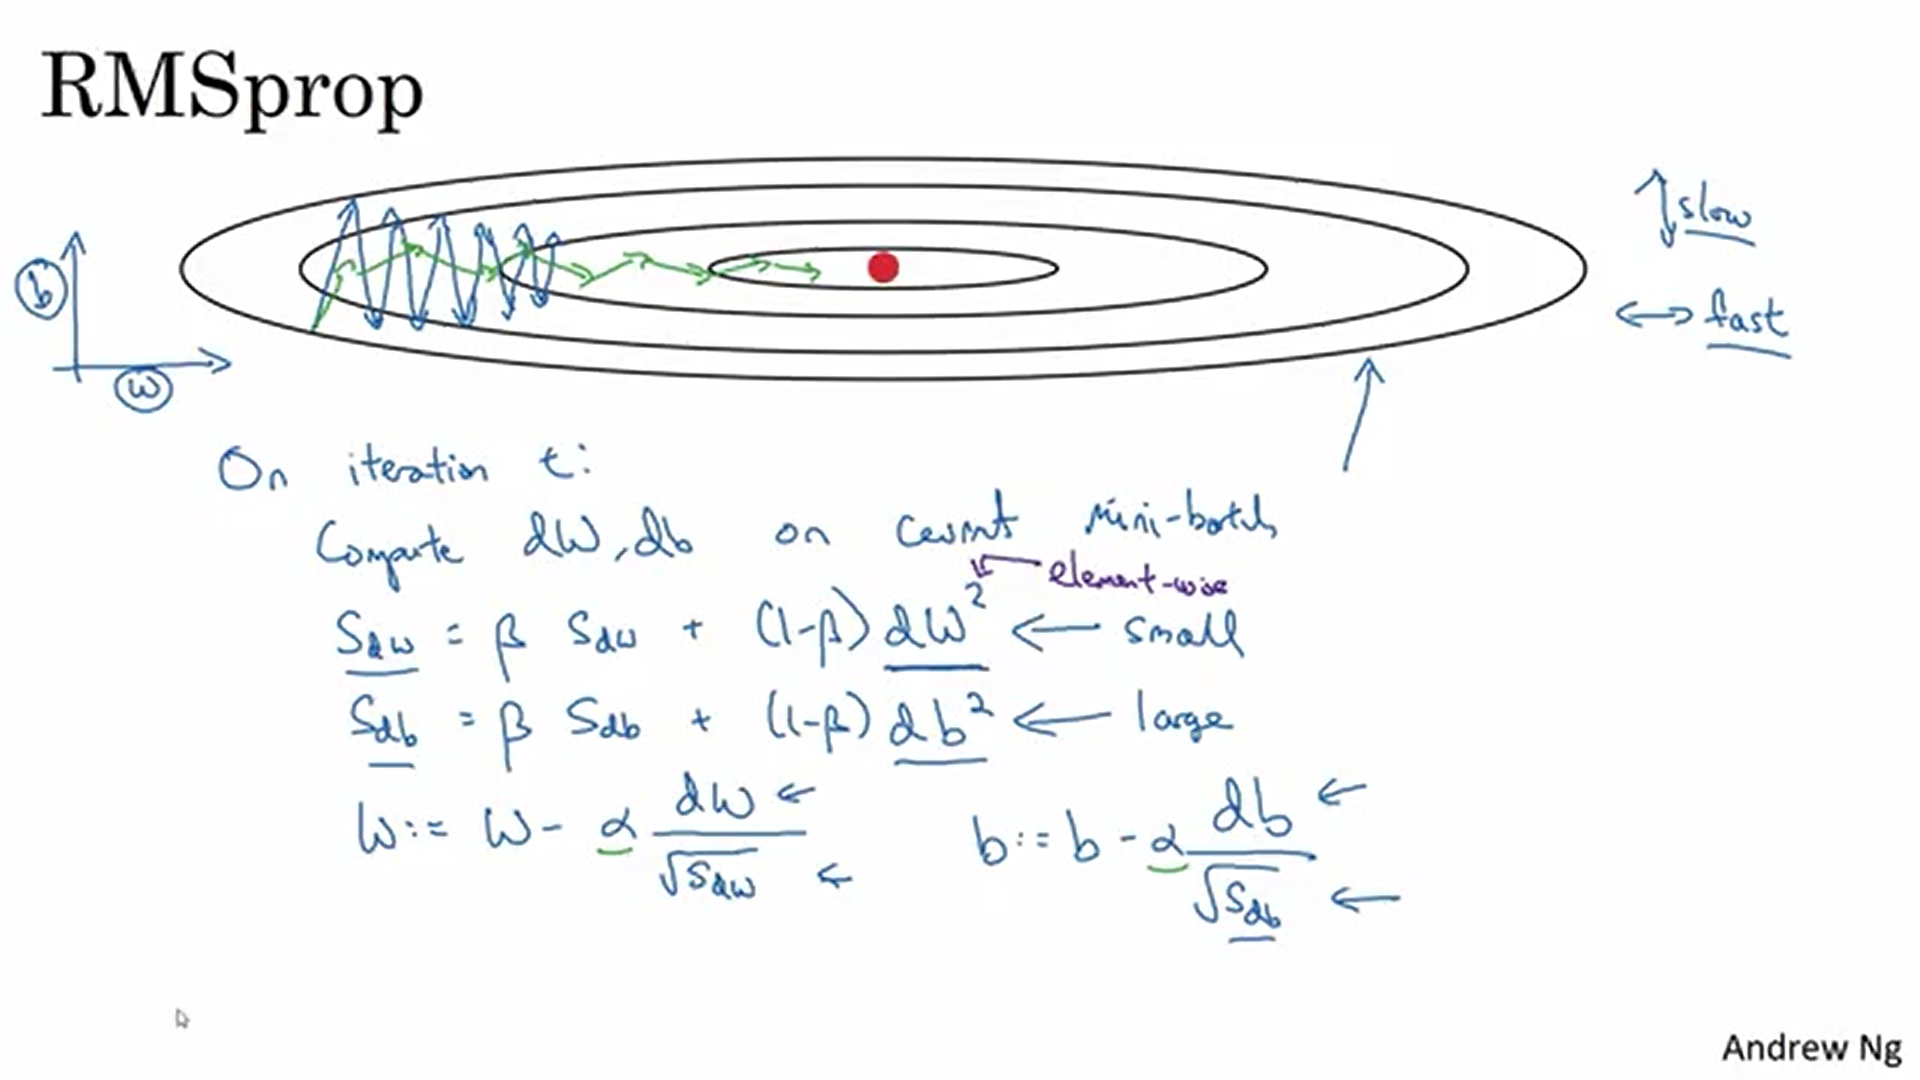 RMSprop
slow
b
fast
w
On iteration t:
Compute dW, db on current mini-batch
element-wise
Sdw = β Sdw + (1-β) dW² ← small
Sdb = β Sdb + (1-β) db² ← large
W := W - α dW / √Sdw ← b := b - α db / √Sdb ←
Andrew Ng